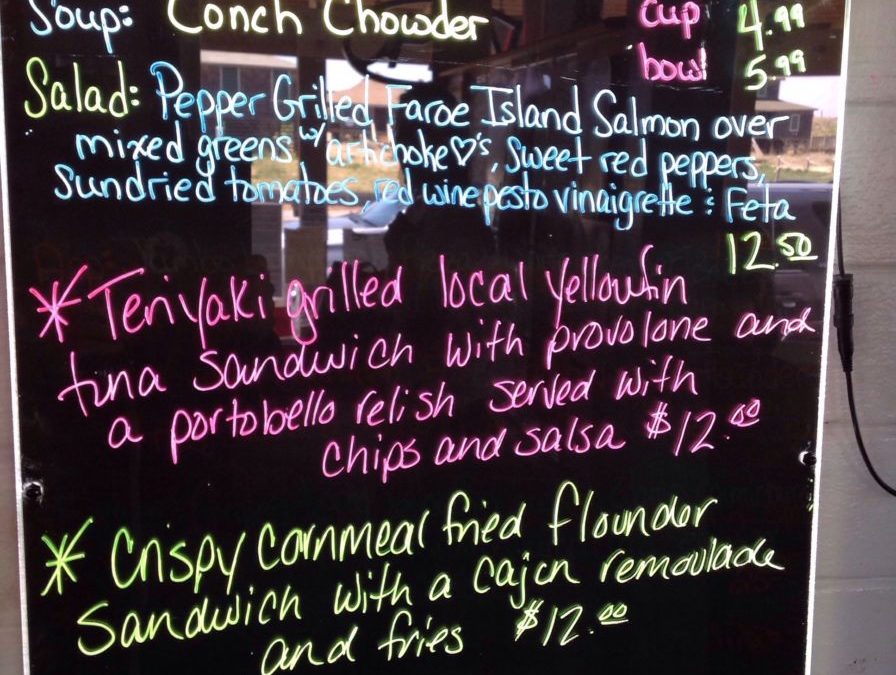 Soup: Conch Chowder cup 4.99
bowl 5.99
Salad: Pepper Grilled Faroe Island Salmon over
mixed greens w/ artichoke♡'s, sweet red peppers,
sundried tomatoes, red wine pesto vinaigrette & Feta
12.50
* Teriyaki grilled local yellowfin
tuna sandwich with provolone and
a portobello relish served with
chips and salsa $12.00
* Crispy cornmeal fried flounder
sandwich with a cajun remoulade
and fries $12.00